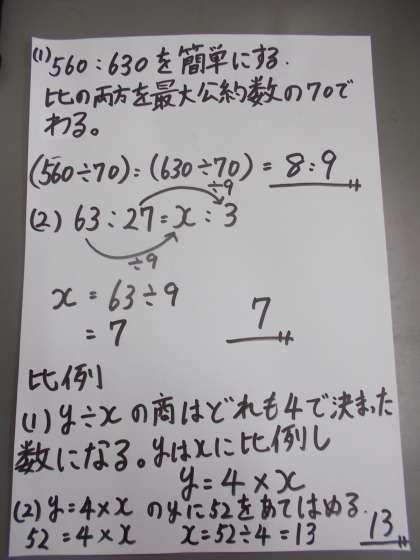 (1) 560:630を簡単にする.
比の両方を最大公約数の70で
わる。
(560÷70):(630÷70)=8:9
÷9
(2) 63:27=x:3
÷9
x=63÷9
=7
7
比例
(1) y÷xの商はどれも4で決まった
数になる。yはxに比例し
y=4×x
(2) y=4×xのyに52をあてはめる.
52=4×x x=52÷4=13
13